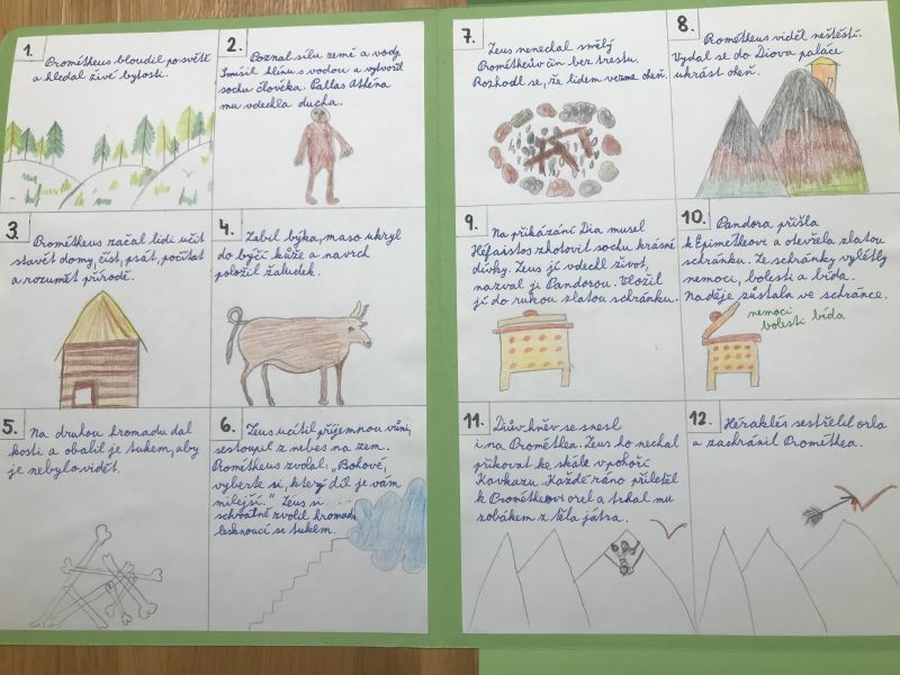 1.
Prométheus bloudil po světě
a hledal živé bytosti.
2.
Poznal sílu země a vody.
Smísil hlínu s vodou a vytvořil
sochu člověka. Pallas Athéna
mu vdechla ducha.
3.
Prométheus začal lidi učit
stavět domy, číst, psát, počítat
a rozumět přírodě.
4.
Zabil býka, maso ukryl
do býčí kůže a navrch
položil žaludek.
5.
Na druhou hromadu dal
kosti a obalil je tukem, aby
je nebylo vidět.
6.
Zeus ucítil příjemnou vůni,
sestoupil z nebes na zem.
Prométheus zvolal: „Bohové,
vyberte si, který díl je vám
milejší." Zeus si
schválně zvolil hromadu
lesknoucí se tukem.
7.
Zeus nenechal smělý
Prométheův čin bez trestu.
Rozhodl se, že lidem vezme oheň.
8.
Prométheus viděl neštěstí.
Vydal se do Diova paláce
ukrást oheň.
9.
Na přikázání Dia musel
Héfaistos zhotovit sochu krásné
dívky. Zeus jí vdechl život,
nazval ji Pandorou. Vložil
jí do rukou zlatou schránku.
10.
Pandora přišla
k Epimetheovi a otevřela zlatou
schránku. Ze schránky vylétly
nemoci, bolesti a bída.
Naděje zůstala ve schránce.
nemoci
bolesti bída
11.
Diův hněv se snesl
i na Prométhea. Zeus ho nechal
přikovat ke skále v pohoří
Kavkazu. Každé ráno přiletěl
k Prométheovi orel a trhal mu
zobákem z těla játra.
12.
Héraklés sestřelil orla
a zachránil Prométhea.